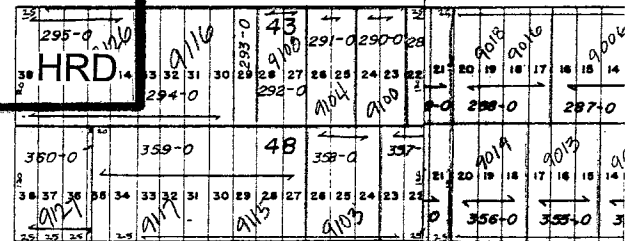 25 43
295-0 9126 9116 293-0 9108 291-0 290-0 28 9018 9016 9006
HRD 14 33 32 31 30 29 28 27 26 25 24 23 22 21 20 19 18 17 16 15 14
294-0 292-0 9104 9100 298-0 287-0
360-0 359-0 48 358-0 357- 9019 9013
38 37 36 35 34 33 32 31 30 29 28 27 26 25 24 23 22 21 20 19 18 17 16 15 14
9127 9117 9115 9103 0 356-0 355-0 3
25 25 25 25 25